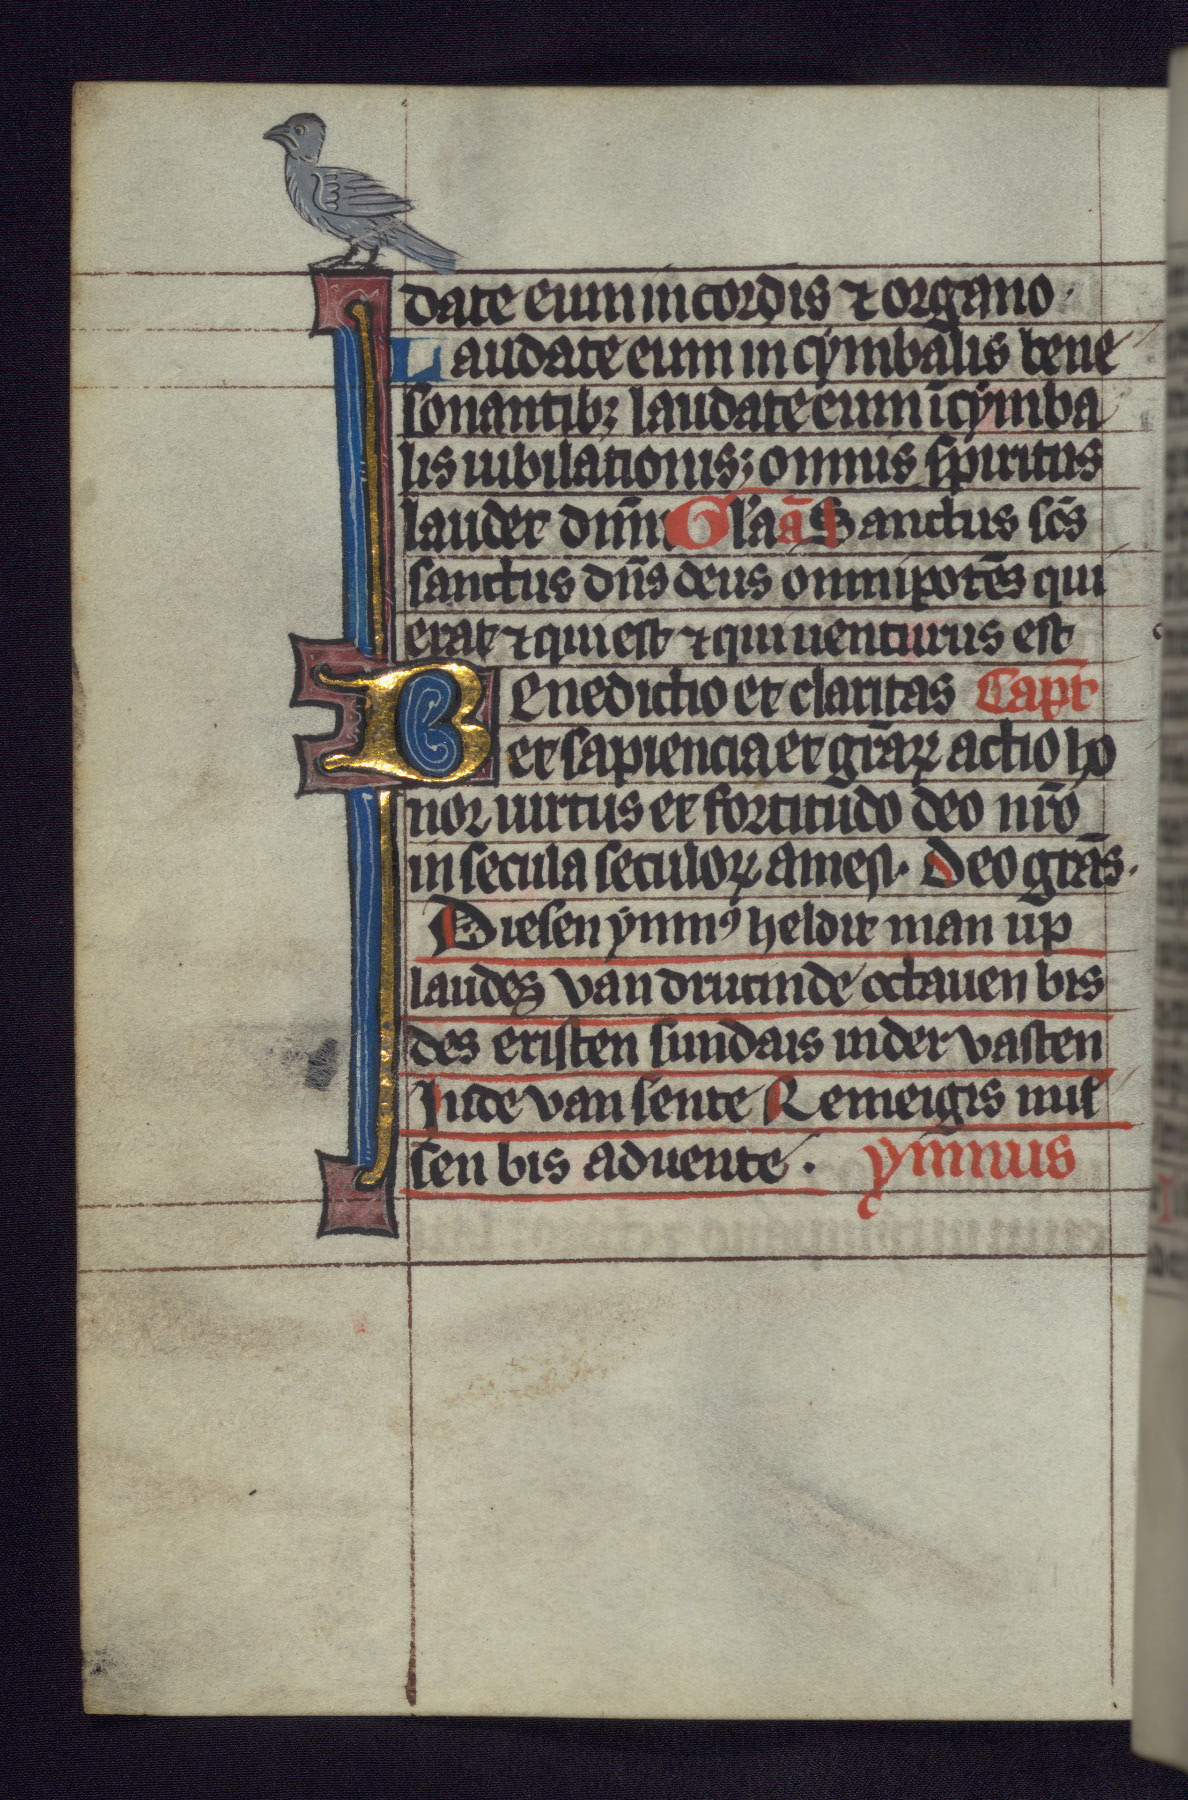 date eum in cordis ⁊ organo.
Laudate eum in cymbalis bene
sonantibꝫ laudate eum ī cymba
lis iubilationis; omnis spiritus
laudet dn̄m Gl'a ā Sanctus sc̄s
sanctus dn̄s deus omnipotēs qui
erat ⁊ qui est ⁊ qui uenturus est
Benedictio et claritas Capt̄
et sapiencia et gr̄aꝝ actio ho
nor uirtus et fortitudo deo nr̄o
in secula seculoꝝ amen. Deo grās.
Diesen ymnꝰ heldit man up
laudes van drutinde octauen bis
des eristen sundais inder vasten
Inde van sente Remeigis mis
sen bis aduente. ymnus